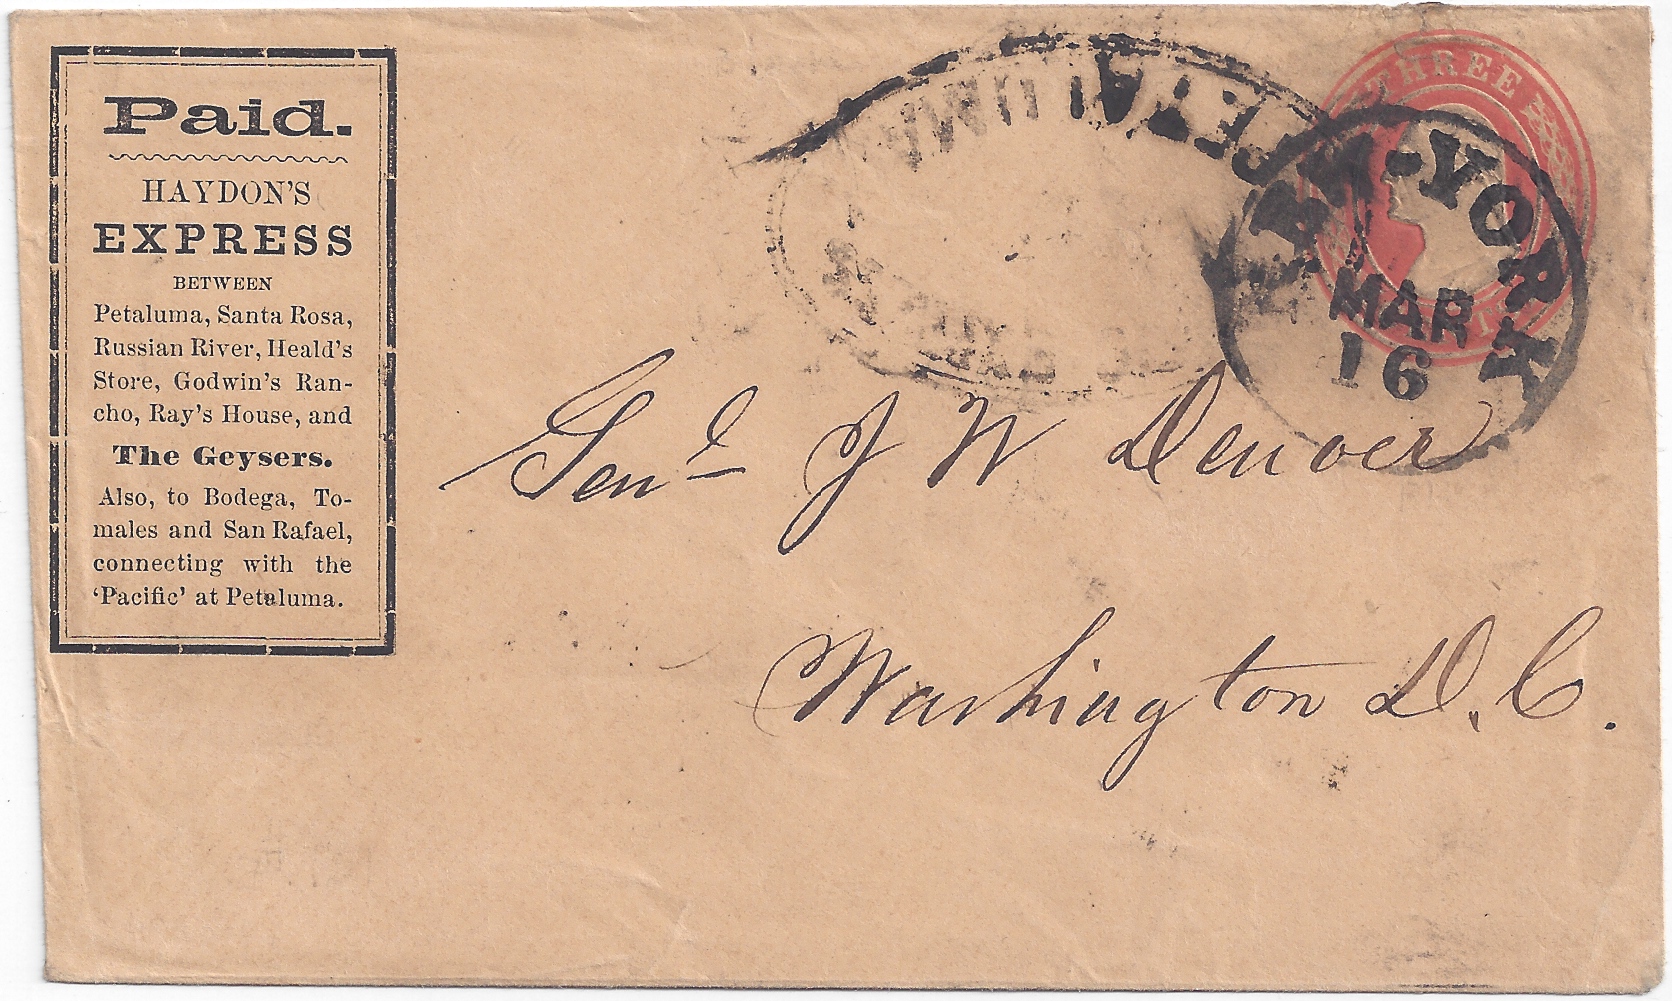 Paid.
HAYDON'S
EXPRESS
BETWEEN
Petaluma, Santa Rosa,
Russian River, Heald's
Store, Godwin's Ran-
cho, Ray's House, and
The Geysers.
Also, to Bodega, To-
males and San Rafael,
connecting with the
'Pacific' at Petaluma.
THREE
EW-YORK
MAR
16
Genl J W Denver
Washington D.C.